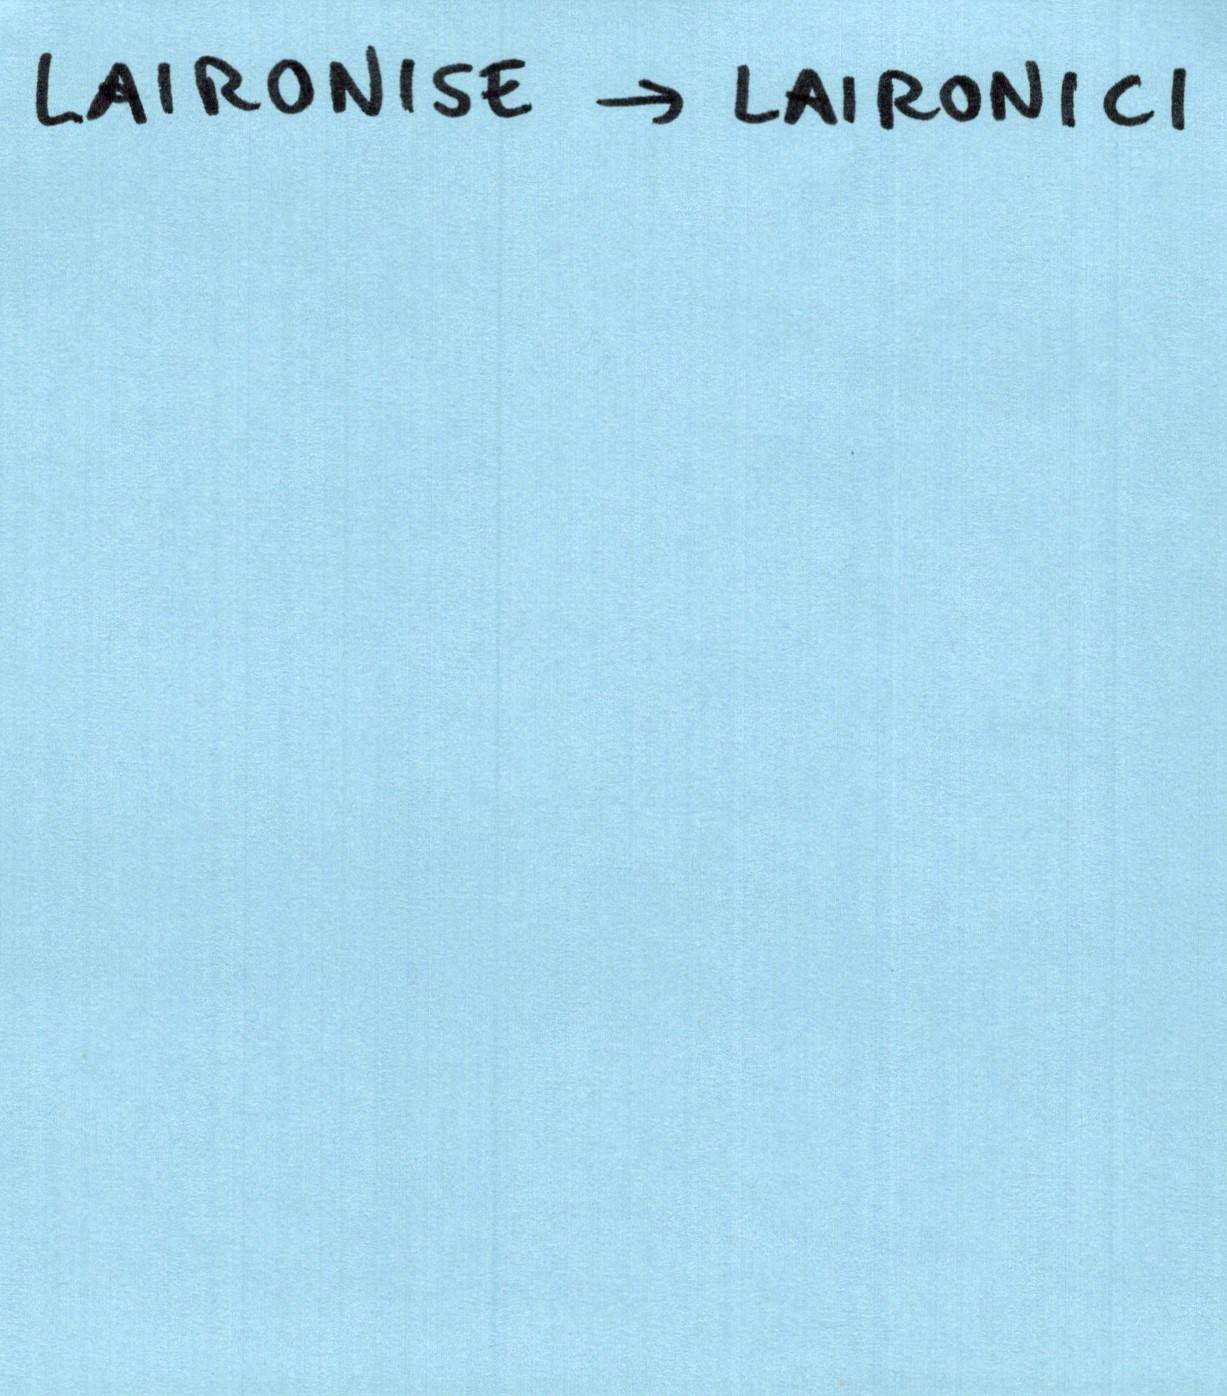 LAIRONISE → LAIRONICI